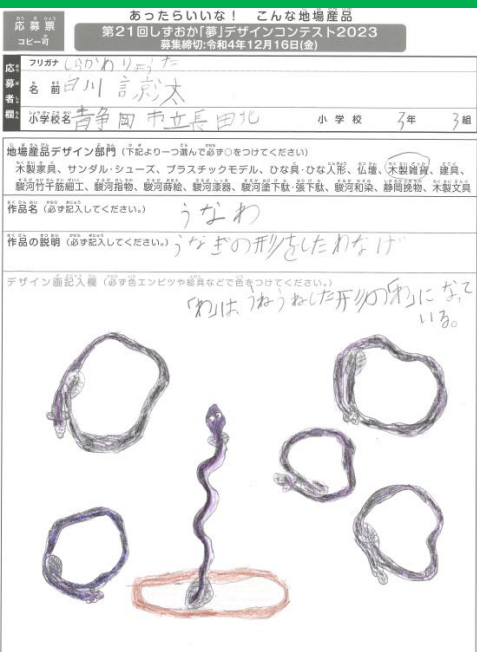 応募票
コピー可
あったらいいな！ こんな地場産品
第21回しずおか「夢」デザインコンテスト2023
募集締切:令和4年12月16日(金)
応募者欄
フリガナ しらかわりょうた
名前 白川 諒太
小学校名 静岡市立長田北 小学校 3年 3組
地場産品デザイン部門(下記より一つ選んで必ず○をつけてください)
木製家具、サンダル・シューズ、プラスチックモデル、ひな具・ひな人形、仏壇、木製雑貨、建具、
駿河竹千筋細工、駿河指物、駿河蒔絵、駿河漆器、駿河塗下駄・張下駄、駿河和染、静岡挽物、木製文具
作品名(必ず記入してください。) うなわ
作品の説明(必ず記入してください。) うなぎの形をしたわなげ
デザイン画記入欄(必ず色エンピツや絵具などで色をつけてください。)
「わ」は、うねうねした形の「わ」になって
いる。